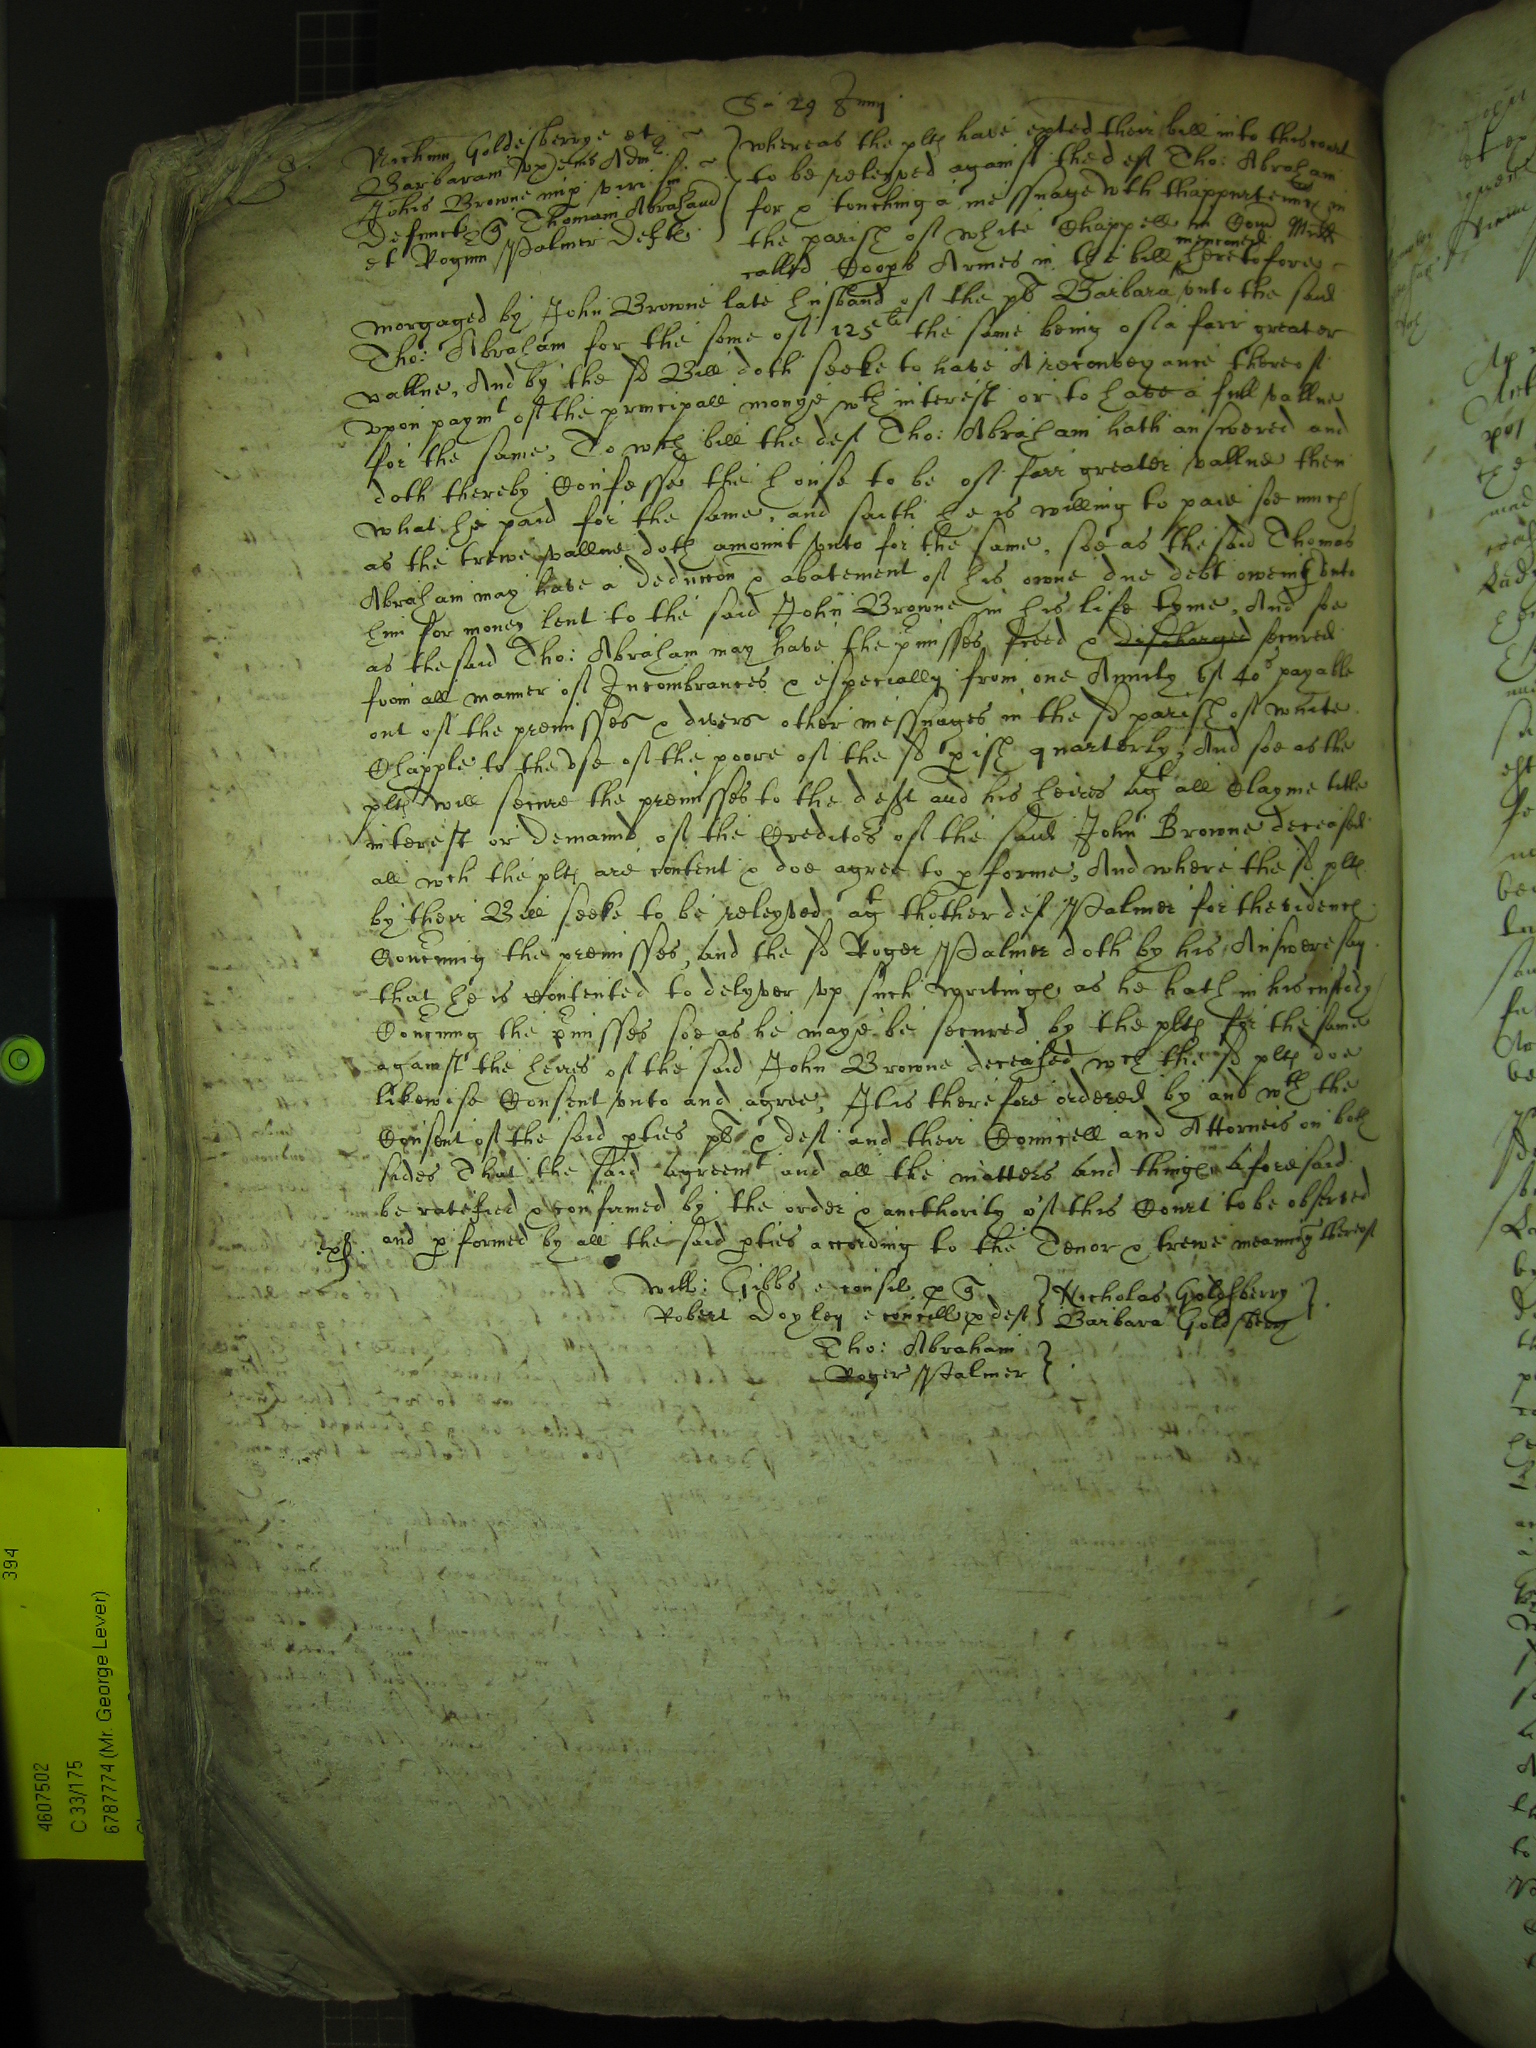 29 Junij
Goldesberrye et
Barbaram vx eius Adm
Johis Browne nup viri sui
defunct Q Thomam Abraham
et Rogerum Palmer Defts
whereas the plts have exted their bill into this court
to be releyved against the deft Tho: Abraham
for & touching a messuage wth thappurtenncs in
the parish of white Chappell in Com Midd
called Coops Armes in the bill menconed heretofore
morgaged by John Browne late husband of the plt Barbara vnto the said
Tho: Abraham for the some of 125li the same being of a farr greater
vallue, And by the sd Bill doth seeke to have A reconveyance thereof
vpon paymt of the principall monye wth interest or to have a full vallue
for the same, To wch bill the deft Tho: Abraham hath answered and
doth thereby Confesse the house to be of farr greater vallue then
what he paid for the same, and saith he is willing to paie soe much
as the trewe vallue doth amount vnto for the same, soe as the said Thomas
Abraham may have a deduccon & abatement of his owne due debt oweing vnto
him for money lent to the said John Browne in his life tyme, And soe
as the said Tho: Abraham may have the pmisses freed & discharged secured
from all manner of Incombrances & especially from one Anuity of 40s payable
out of the premisses & divers other messuages in the sd parish of white
Chapple to the vse of the poore of the sd pish quarterly, And soe as the
plts will secure the premisses to the deft and his heires agt all Clayme title
interest or demannd of the Creditors of the said John Browne deceased
all wch the plts are content & doe agree to pforme, And where the sd plts
by their Bill seeke to be releyved agt thother deft Palmer for thevidencs
Concning the premisses, and the sd Roger Palmer doth by his Answere say
that he is Contented to delyver vp such writings as he hath in his custody
Concning the pmisses soe as he maye be secured by the plts for the same
against the heires of the said John Browne deceased wch the sd plts doe
likewise Consent vnto and agree, It is therefore ordered by and wth the
Consent of the said pties plt & deft and their Councell and Attorneis on both
sides That the said agreemt and all the matters and things aforesaid
be ratefied & confirmed by the order & aucthority of this Court to be observed
and pformed by all the said pties according to the Tenor & trewe meaning thereof
Will: Gibbs e consil p Q
Robert Doyley e concill p deft
Nicholas Goldsberry
Barbara Goldsberry
Tho: Abraham
Roger Palmer
394
4607502
C 33/175
6787774 (Mr. George Lever)